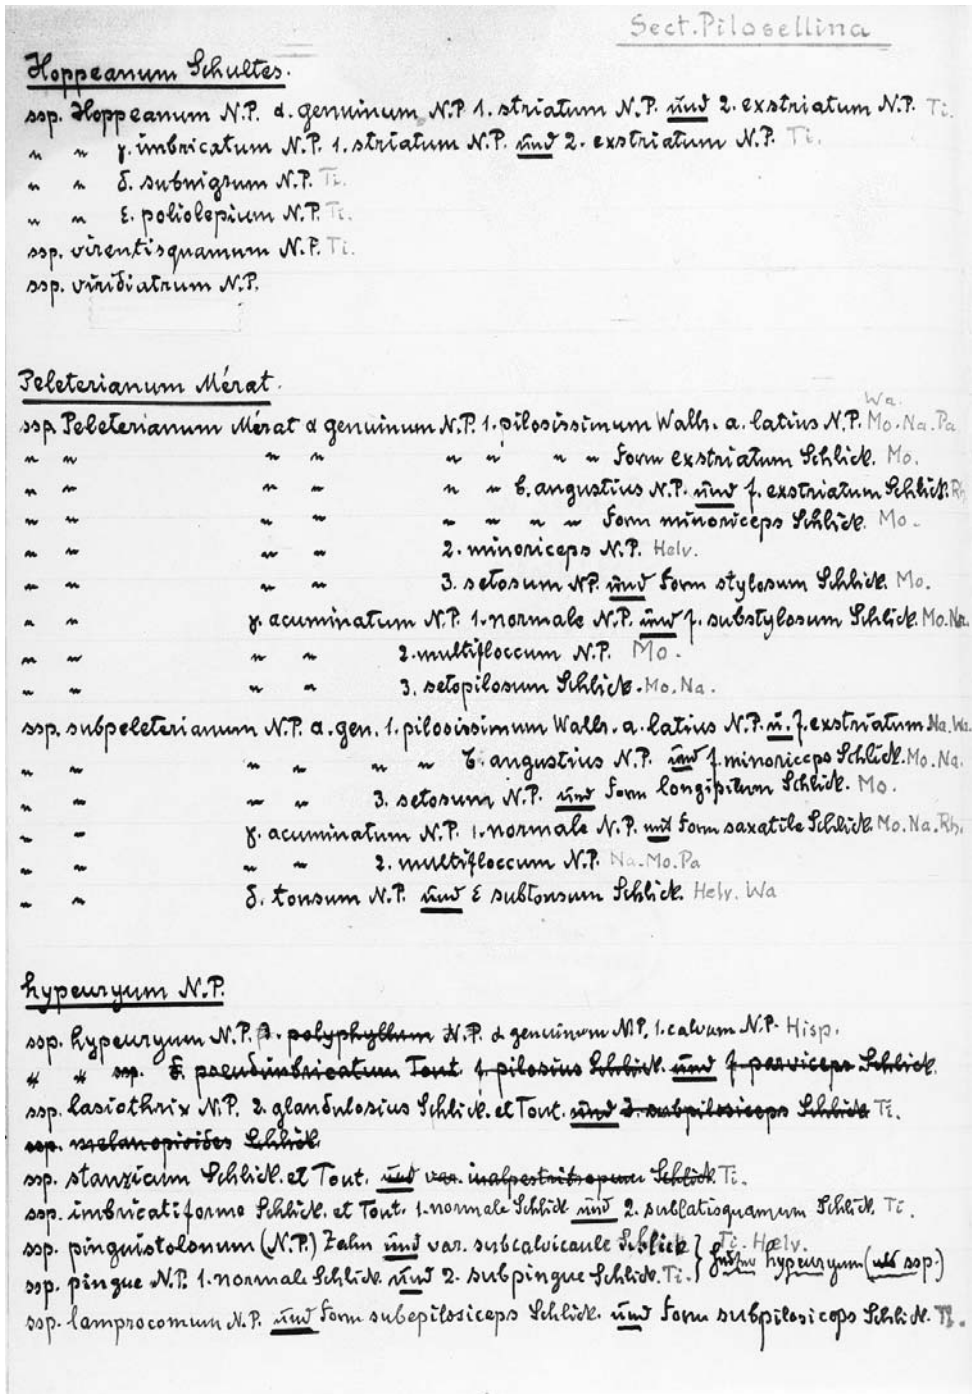 Sect. Pilosellina
Hoppeanum Schultes.
ssp. Hoppeanum N.P. α. genuinum N.P. 1. striatum N.P. und 2. exstriatum N.P. Ti.
" " γ. imbricatum N.P. 1. striatum N.P. und 2. exstriatum N.P. Ti.
" " δ. subnigrum N.P. Ti.
" " ε. poliolepium N.P. Ti.
ssp. virentisquamum N.P. Ti.
ssp. viridiatrum N.P.
Peleterianum Mérat.
Wa.
ssp. Peleterianum Mérat α genuinum N.P. 1. pilosissimum Wallr. a. latius N.P. Mo. Na. Pa
" " " " " " " " Form exstriatum Schlick. Mo.
" " " " " " b. angustius N.P. und f. exstriatum Schlick. Rh
" " " " " " " " Form minoriceps Schlick. Mo.
" " " " 2. minoriceps N.P. Helv.
" " " " 3. setosum N.P. und Form stylosum Schlick. Mo.
" " γ. acuminatum N.P. 1. normale N.P. und f. substylosum Schlick. Mo. Na.
" " " " 2. multifloccum N.P. Mo.
" " " " 3. setopilosum Schlick. Mo. Na.
ssp. subpeleterianum N.P. α. gen. 1. pilosissimum Wallr. a. latius N.P. u. f. exstriatum Na. Wa.
" " " " " " b. angustius N.P. und f. minoriceps Schlick. Mo. Na.
" " " " 3. setosum N.P. und Form longipilum Schlick. Mo.
" " γ. acuminatum N.P. 1. normale N.P. und Form saxatile Schlick Mo. Na. Rh.
" " " " 2. multifloccum N.P. Na. Mo. Pa
" " δ. tonsum N.P. und ε subtonsum Schlick. Helv. Wa
hypeuryum N.P.
ssp. hypeuryum N.P. polyphyllum N.P. α genuinum N.P. 1. calvum N.P. Hisp.
" " ssp. pseudimbricatum Tout. f. pilosius Schlick. und f. parviceps Schlick
ssp. lasiothrix N.P. 2. glandulosius Schlick. et Tout. und 3. subpilosiceps Schlick Ti.
ssp. melanopioides Schlick.
ssp. stanzicum Schlick. et Tout. und var. Schlick. Ti.
ssp. imbricatiforme Schlick. et Tout. 1. normale Schlick und 2. sublatisquamum Schlick. Ti.
ssp. pinguistolonum (N.P.) Zahn und var. subcalvicaule Schlick } Ti. Helv.
ssp. pingue N.P. 1. normale Schlick. und 2. subpingue Schlick. Ti. } hypeuryum (als ssp.)
ssp. lamprocomum N.P. und Form subepilosiceps Schlick. und Form subpilosiceps Schlick. Ti.